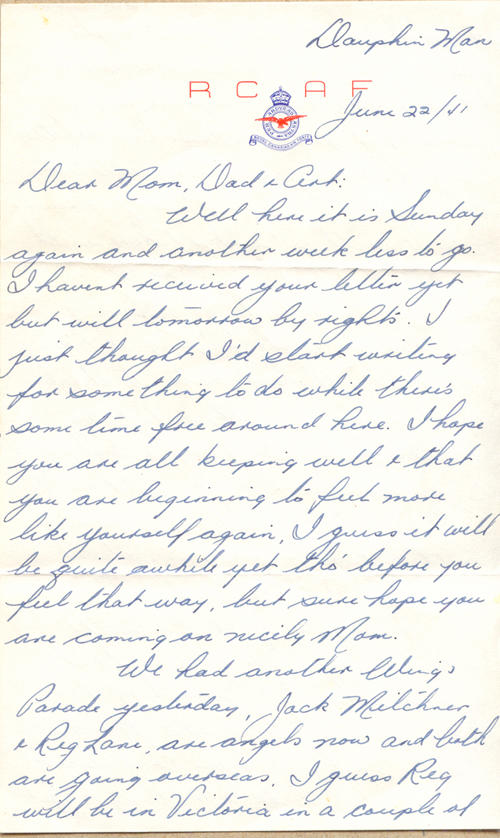 Dauphin Man
RCAF
PER ARDUA AD ASTRA
ROYAL CANADIAN AIR FORCE
June 22/41
Dear Mom, Dad & Art:
Well here it is Sunday
again and another week less to go.
I havent received your letter yet
but will tomorrow by rights. I
just thought I'd start writing
for something to do while there's
some time free around here. I hope
you are all keeping well & that
you are beginning to feel more
like yourself again, I guess it will
be quite awhile yet tho' before you
feel that way, but sure hope you
are coming on nicely Mom.
We had another Wings
Parade yesterday, Jack Milchner
& Reg Lane, are angels now and both
are going overseas. I guess Reg
will be in Victoria in a couple of